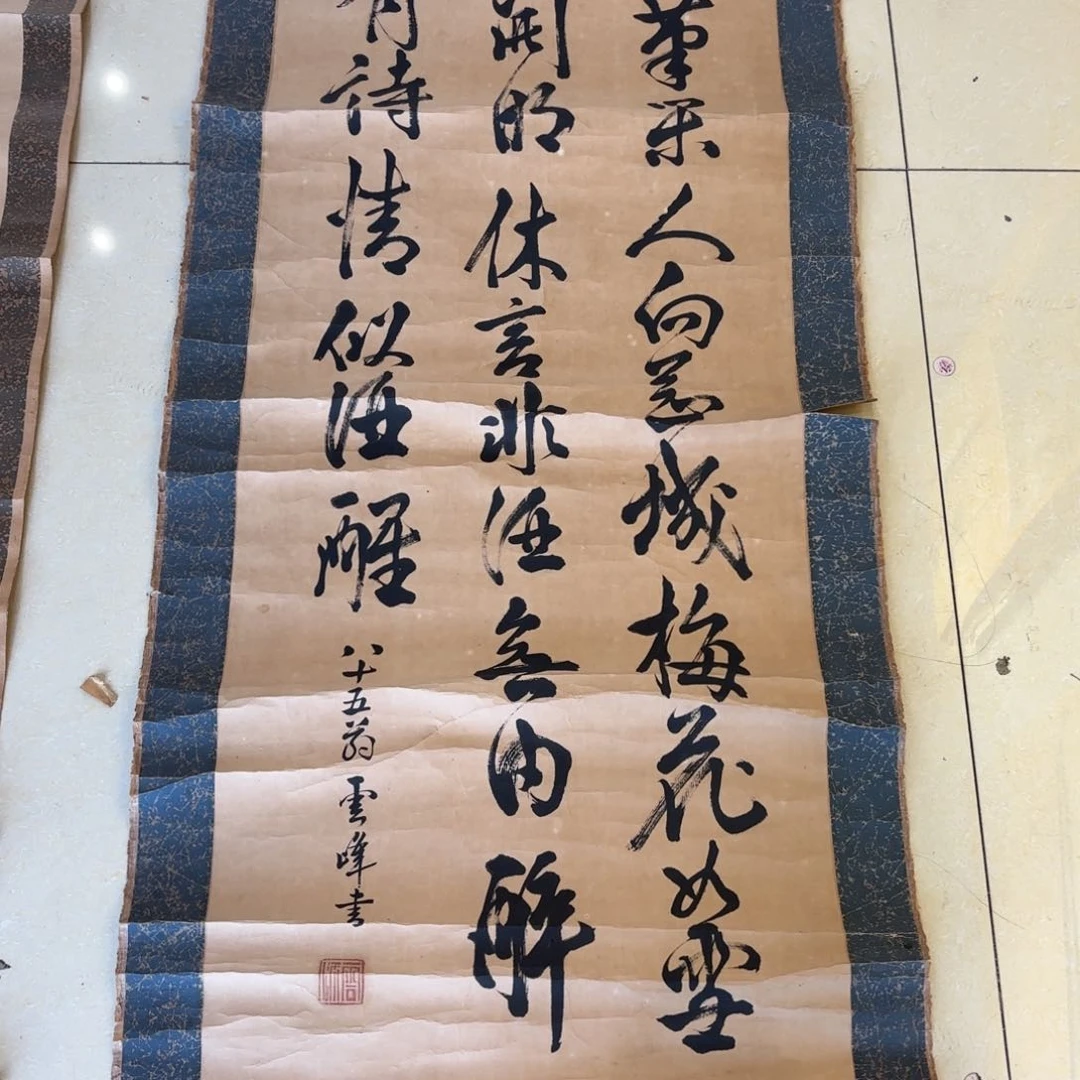 人向城梅花如
開明休言非酒無由醉
有詩情似酒醒
八十五翁雲峰書